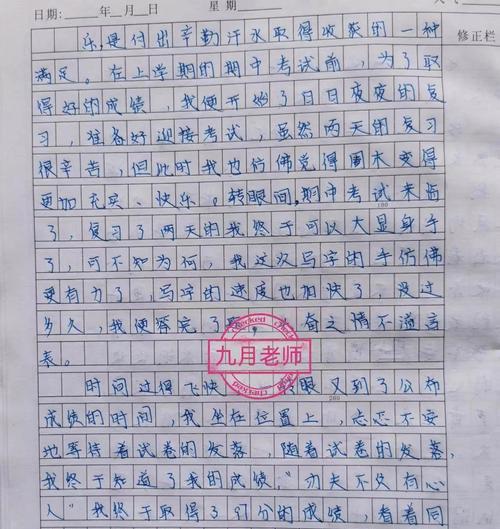 日期: 年 月 日 星期:
修正栏
乐,是付出辛勤汗水取得收获的一种
满足。在上学期的期中考试前,为了取
得好的成绩,我便开始了日日夜夜的复
习,准备好迎接考试,虽然两天的复习
很辛苦,但此时我也仿佛觉得周末变得
更加充实、快乐。转眼间,期中考试来临
了,复习了两天的我终于可以大显身手
100
了,可不知为何,我这次写字的手仿佛
更有力了,写字的速度也加快了,没过
多久,我便答完了 ,奋之情不溢言
表。
九月老师
Checked
checked
时间过得飞快 转眼又到了公布
200
成绩的时间,我坐在位置上,忐忑不安
地等待着试卷的发落,随着试卷的发落,
我终于知道了我的成绩,“功夫不负有心
人”我终于取得了97分的成绩,看着同